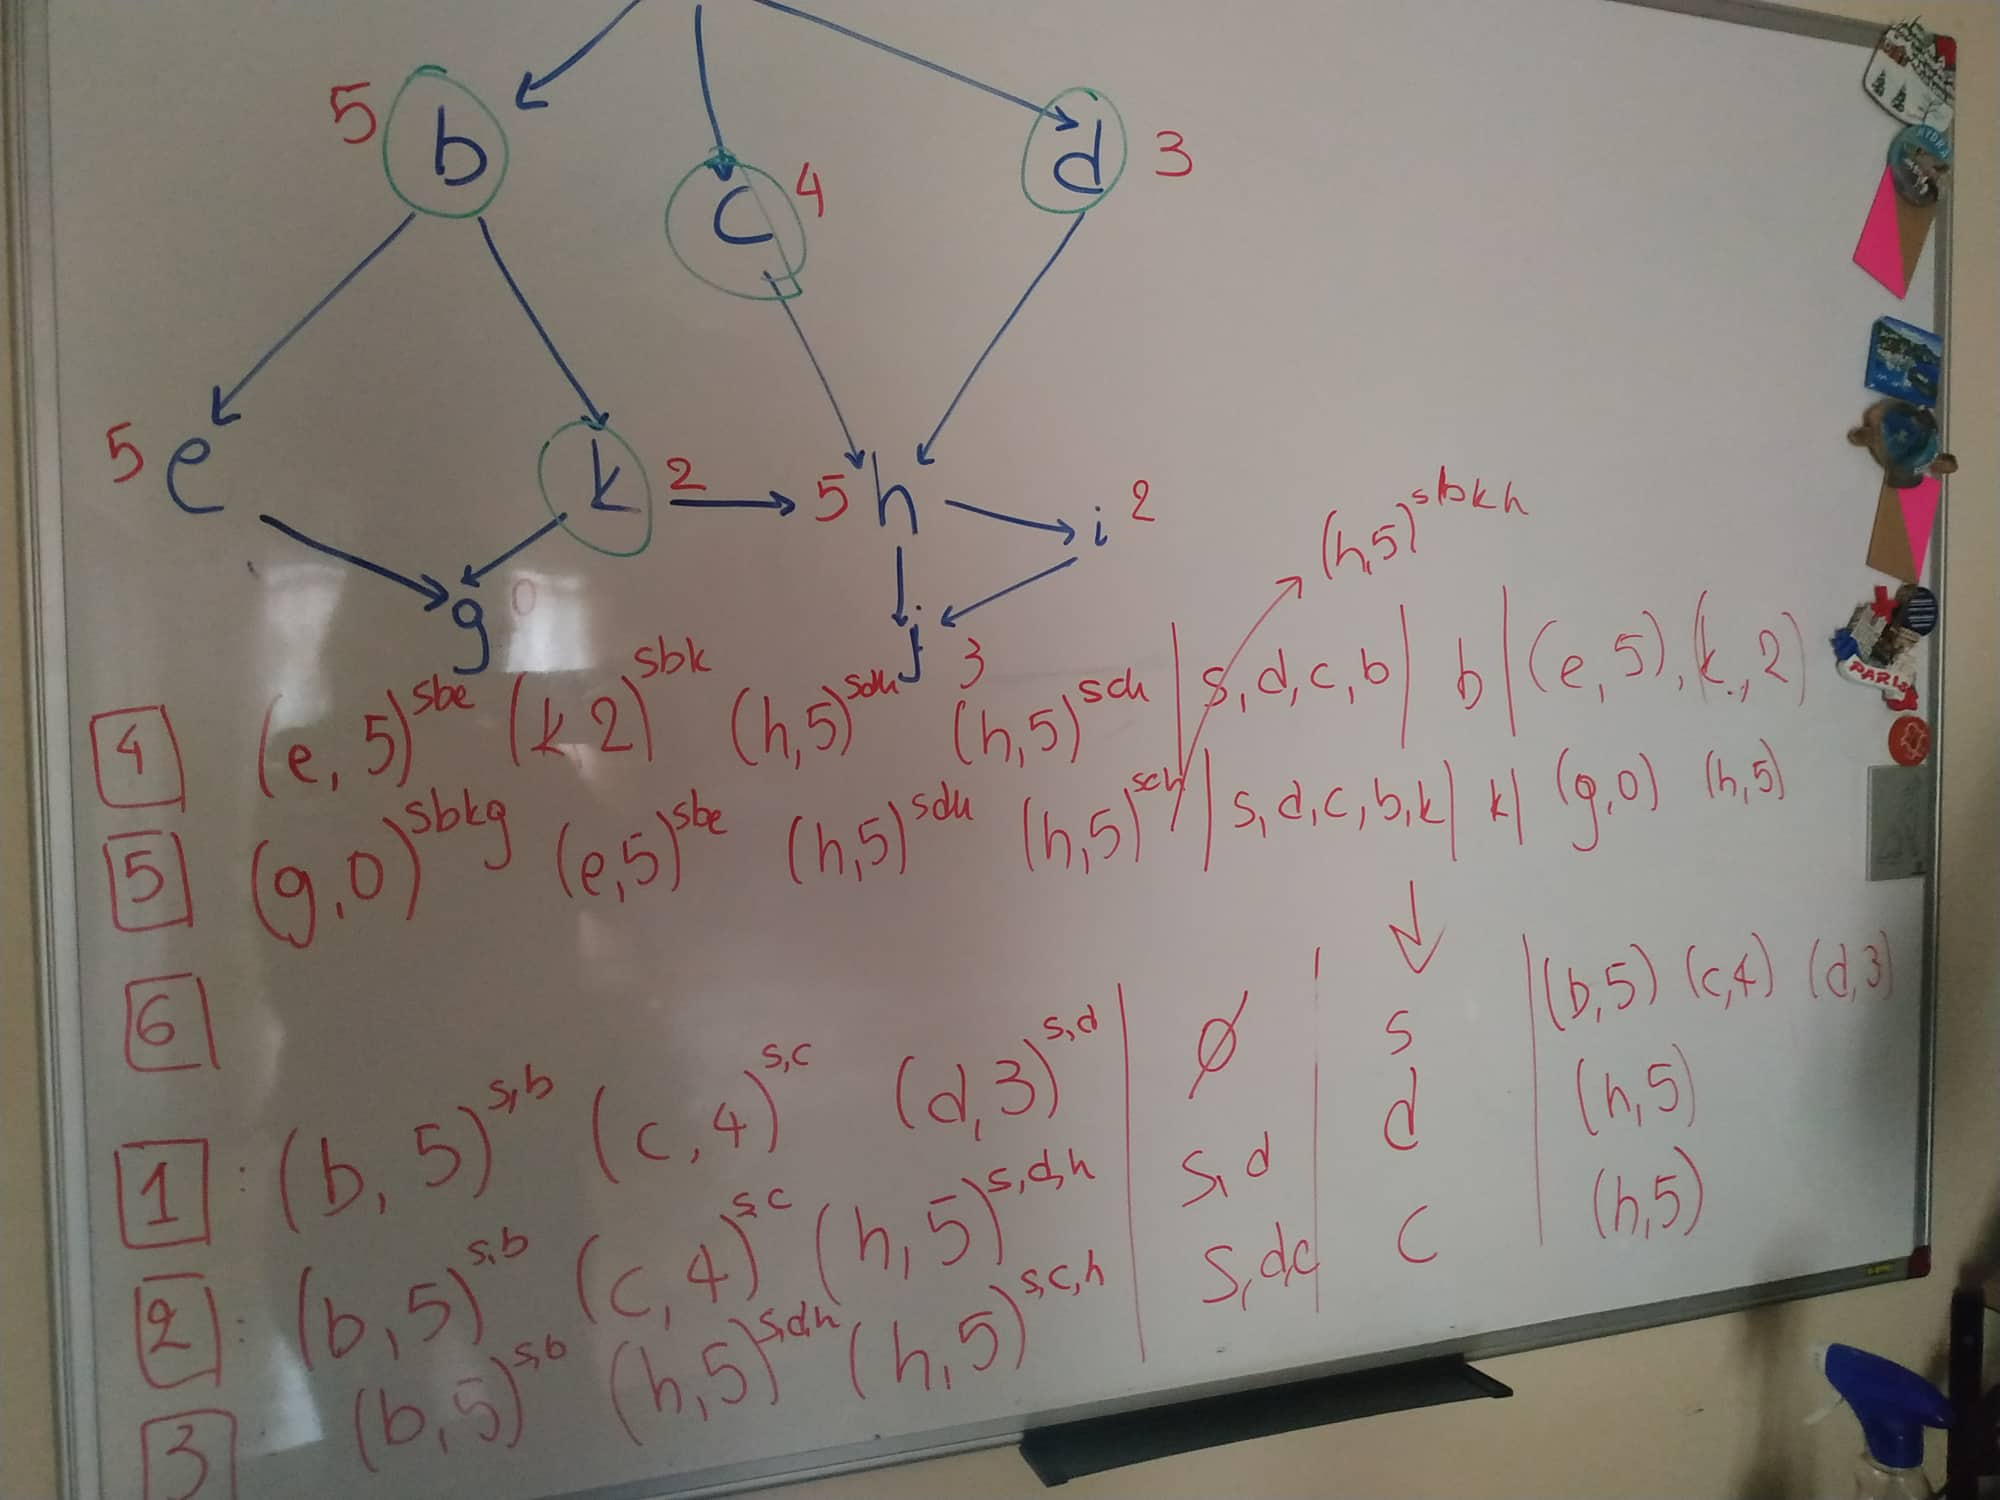 5 b
c 4
d 3
5 e
k 2
5 h
i 2
g 0
j 3
(h,5)^sbkh
4 (e,5)^sbe (k,2)^sbk (h,5)^sdh (h,5)^sch | s,d,c,b | b | (e,5),(k,2)
5 (g,0)^sbkg (e,5)^sbe (h,5)^sdh (h,5)^sch | s,d,c,b,k | k | (g,0) (h,5)
6
∅ | s | (b,5) (c,4) (d,3)
1 : (b,5)^s,b (c,4)^s,c (d,3)^s,d | s,d | d | (h,5)
2 : (b,5)^s,b (c,4)^s,c (h,5)^s,d,h | s,d,c | c | (h,5)
3 (b,5)^s,b (h,5)^s,d,h (h,5)^s,c,h
PARIS